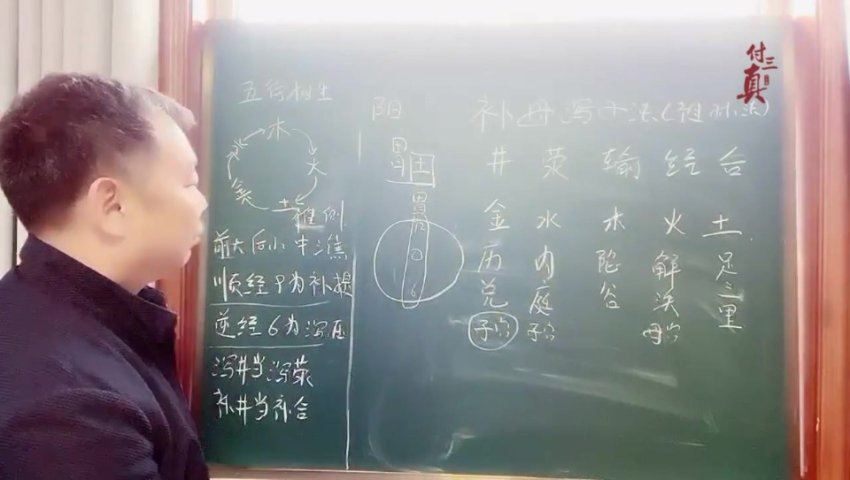 付三真
五行相生
木
火
土
金
水
前大后小中三焦
顺经9为补提
逆经6为泻压
泻井当泻荥
补井当补合
阳
土
胃
补母泻子法
井 荥 输 经 合
金 水 木 火 土
历兑 内庭 陷谷 解决 足三里
子穴 子穴 母穴